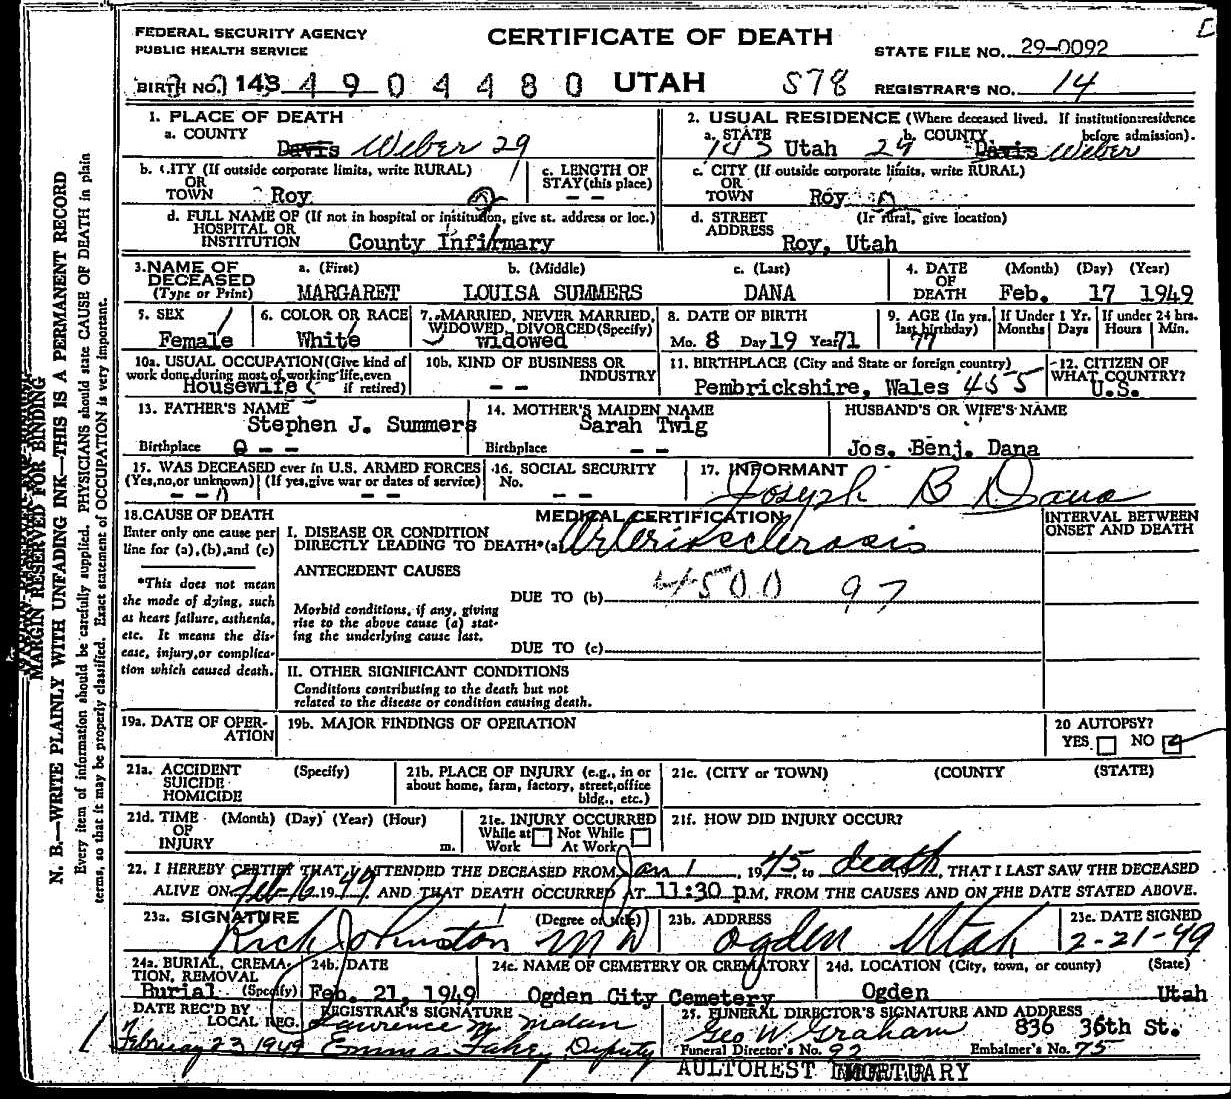 FEDERAL SECURITY AGENCY
PUBLIC HEALTH SERVICE
CERTIFICATE OF DEATH
STATE FILE NO. 29-0092
BIRTH NO. 143 4904480 UTAH 578 REGISTRAR'S NO. 14
MARGIN RESERVED FOR BINDING
N. B.—WRITE PLAINLY WITH UNFADING INK—THIS IS A PERMANENT RECORD
Every item of information should be carefully supplied. PHYSICIANS should state CAUSE OF DEATH in plain
terms, so that it may be properly classified. Exact statement of OCCUPATION is very important.
1. PLACE OF DEATH
a. COUNTY
Davis Weber 29
2. USUAL RESIDENCE (Where deceased lived. If institution:residence before admission).
a. STATE b. COUNTY
143 Utah 29 Davis Weber
b. CITY (If outside corporate limits, write RURAL)
OR
TOWN Roy
c. LENGTH OF
STAY (this place)
--
c. CITY (If outside corporate limits, write RURAL)
OR
TOWN Roy
d. FULL NAME OF (If not in hospital or institution, give st. address or loc.)
HOSPITAL OR
INSTITUTION County Infirmary
d. STREET (If rural, give location)
ADDRESS
Roy, Utah
3. NAME OF DECEASED
(Type or Print)
a. (First) b. (Middle) c. (Last)
MARGARET LOUISA SUMMERS DANA
4. DATE OF DEATH
(Month) (Day) (Year)
Feb. 17 1949
5. SEX
Female
6. COLOR OR RACE
White
7. MARRIED, NEVER MARRIED,
WIDOWED, DIVORCED (Specify)
widowed
8. DATE OF BIRTH
Mo. 8 Day 19 Year 71
9. AGE (In yrs. last birthday)
77
If Under 1 Yr.
Months Days
If under 24 hrs.
Hours Min.
10a. USUAL OCCUPATION (Give kind of
work done during most of working life, even
if retired)
Housewife
10b. KIND OF BUSINESS OR
INDUSTRY
--
11. BIRTHPLACE (City and State or foreign country)
Pembrickshire, Wales 455
12. CITIZEN OF
WHAT COUNTRY?
U.S.
13. FATHER'S NAME
Stephen J. Summers
Birthplace --
14. MOTHER'S MAIDEN NAME
Sarah Twig
Birthplace --
HUSBAND'S OR WIFE'S NAME
Jos. Benj. Dana
15. WAS DECEASED ever in U.S. ARMED FORCES
(Yes, no, or unknown) (If yes, give war or dates of service)
-- --
16. SOCIAL SECURITY
No.
--
17. INFORMANT
Joseph B Dana
18. CAUSE OF DEATH
Enter only one cause per
line for (a), (b), and (c)
*This does not mean
the mode of dying, such
as heart failure, asthenia,
etc. It means the dis-
ease, injury, or complica-
tion which caused death.
MEDICAL CERTIFICATION
I. DISEASE OR CONDITION
DIRECTLY LEADING TO DEATH*(a) Arteriosclerosis
ANTECEDENT CAUSES
DUE TO (b) 4500 97
Morbid conditions, if any, giving
rise to the above cause (a) stat-
ing the underlying cause last.
DUE TO (c)
II. OTHER SIGNIFICANT CONDITIONS
Conditions contributing to the death but not
related to the disease or condition causing death.
INTERVAL BETWEEN
ONSET AND DEATH
19a. DATE OF OPER-
ATION
19b. MAJOR FINDINGS OF OPERATION
20 AUTOPSY?
YES NO
21a. ACCIDENT (Specify)
SUICIDE
HOMICIDE
21b. PLACE OF INJURY (e.g., in or
about home, farm, factory, street, office
bldg., etc.)
21c. (CITY or TOWN) (COUNTY (STATE)
21d. TIME (Month) (Day) (Year) (Hour)
OF
INJURY m.
21e. INJURY OCCURRED
While at Work Not While At Work
21f. HOW DID INJURY OCCUR?
22. I HEREBY CERTIFY THAT I ATTENDED THE DECEASED FROM Jan 1, 1945 to death, THAT I LAST SAW THE DECEASED
ALIVE ON Feb-16 1949 AND THAT DEATH OCCURRED AT 11:30 P.M, FROM THE CAUSES AND ON THE DATE STATED ABOVE.
23a. SIGNATURE (Degree or title)
Rich Johnston MD
23b. ADDRESS
Ogden Utah
23c. DATE SIGNED
2-21-49
24a. BURIAL, CREMA-
TION, REMOVAL
Burial (Specify)
24b. DATE
Feb. 21, 1949
24c. NAME OF CEMETERY OR CREMATORY
Ogden City Cemetery
24d. LOCATION (City, town, or county) (State)
Ogden Utah
DATE REC'D BY
LOCAL REG.
February 23 1949
REGISTRAR'S SIGNATURE
Lawrence M.
Emma Fahey Deputy
25. FUNERAL DIRECTOR'S SIGNATURE AND ADDRESS
Geo W. Graham 836 36th St.
Funeral Director's No. 92 Embalmer's No. 75
AULTOREST MORTUARY